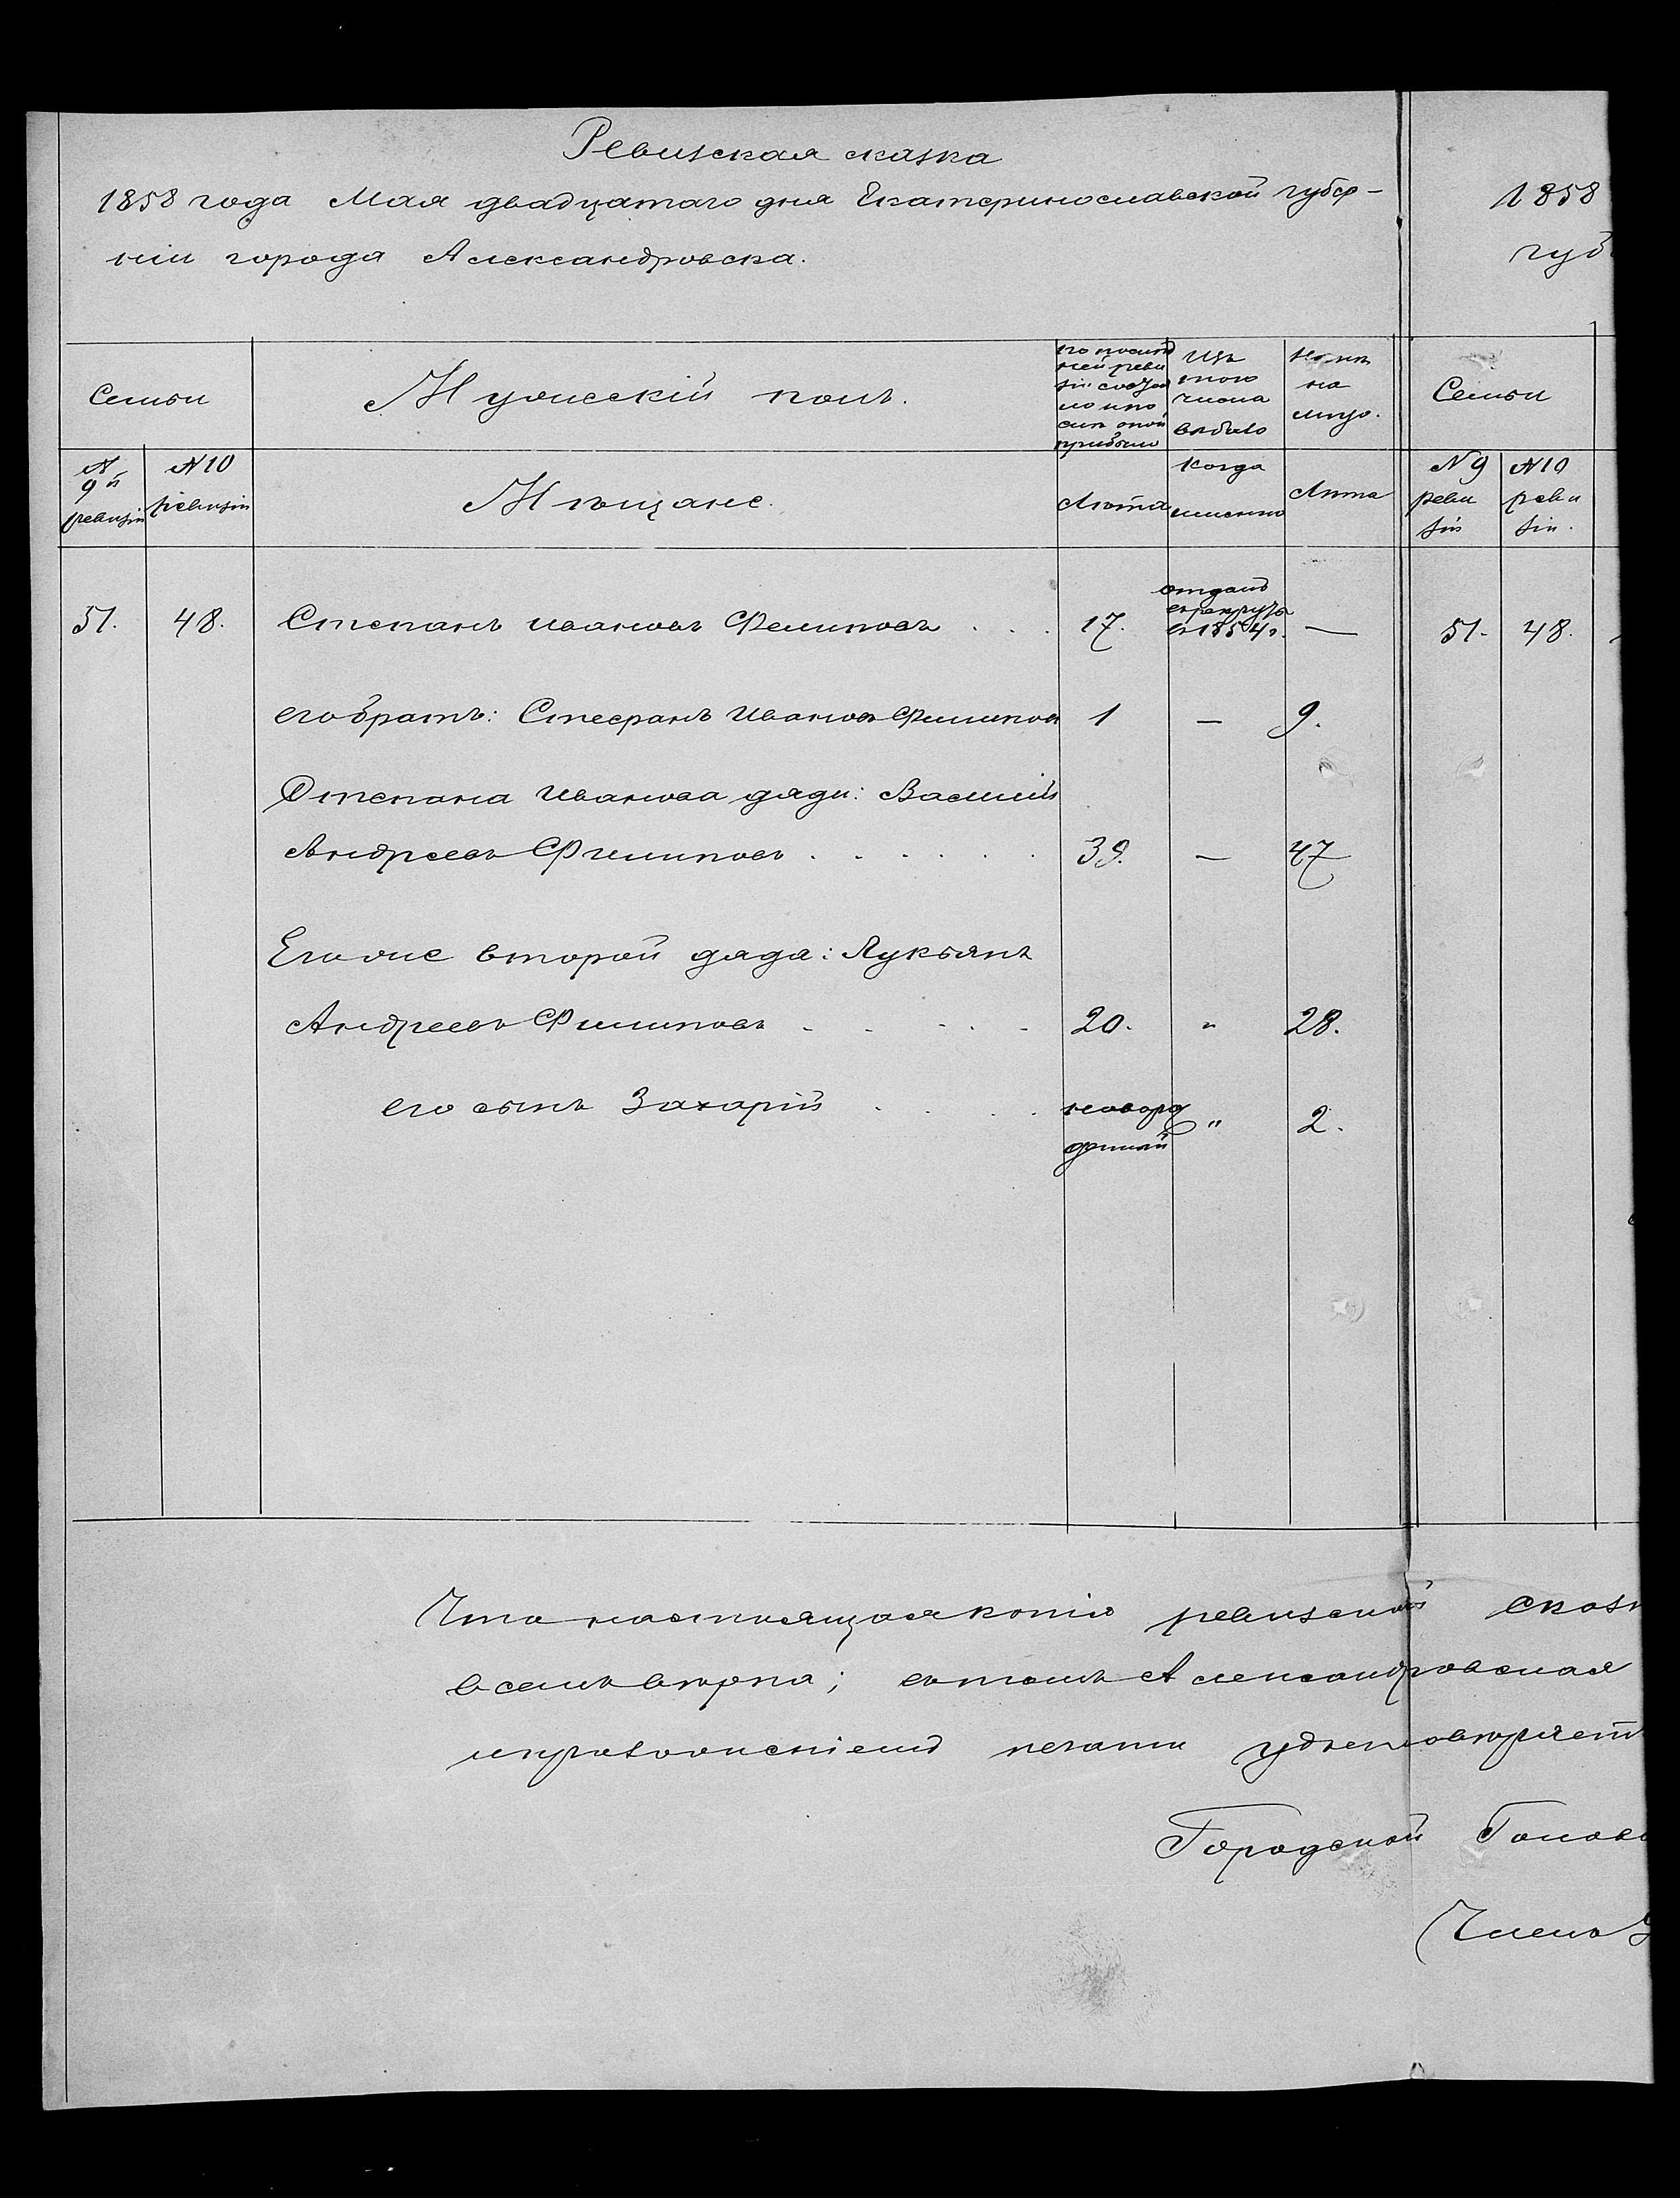 Ревизская сказка
1858 года Мая двадцатаго дня Екатеринославской губер-
ніи города Александровска.
1858
губ
Семьи
Мужескій полъ.
по послѣд
ней реви
зіи состоя
ло и по
слѣ оной
прибыло
Изъ
того
числа
выбыло
Нынѣ
на
лицо.
Семьи
№
9й
ревизіи
№10
ревизіи
Мѣщане.
Лѣта
Когда
именно
Лѣта
№9
реви
зіи
№10
реви
зіи.
51. 48. Степанъ Ивановъ Фелиповъ . . . 17. отданъ
в рекруты
въ 1854 г. — 51. 48.
его братъ: Стефанъ Ивановъ Филиповъ 1 — 9.
Степана Иванова дяди: Василій
Андреевъ Филиповъ . . . . . . 39. — 47
Его же второй дядя: Лукьянъ
Андреевъ Филиповъ . . . . . 20. " 28.
его сынъ Захарій . . . . новорож
денный " 2.
Что настоящая копія ревизской сказк
всемъ вѣрна; въ томъ Александровская
приложеніемъ печати удостовѣряет
Городской Голова
Членъ У